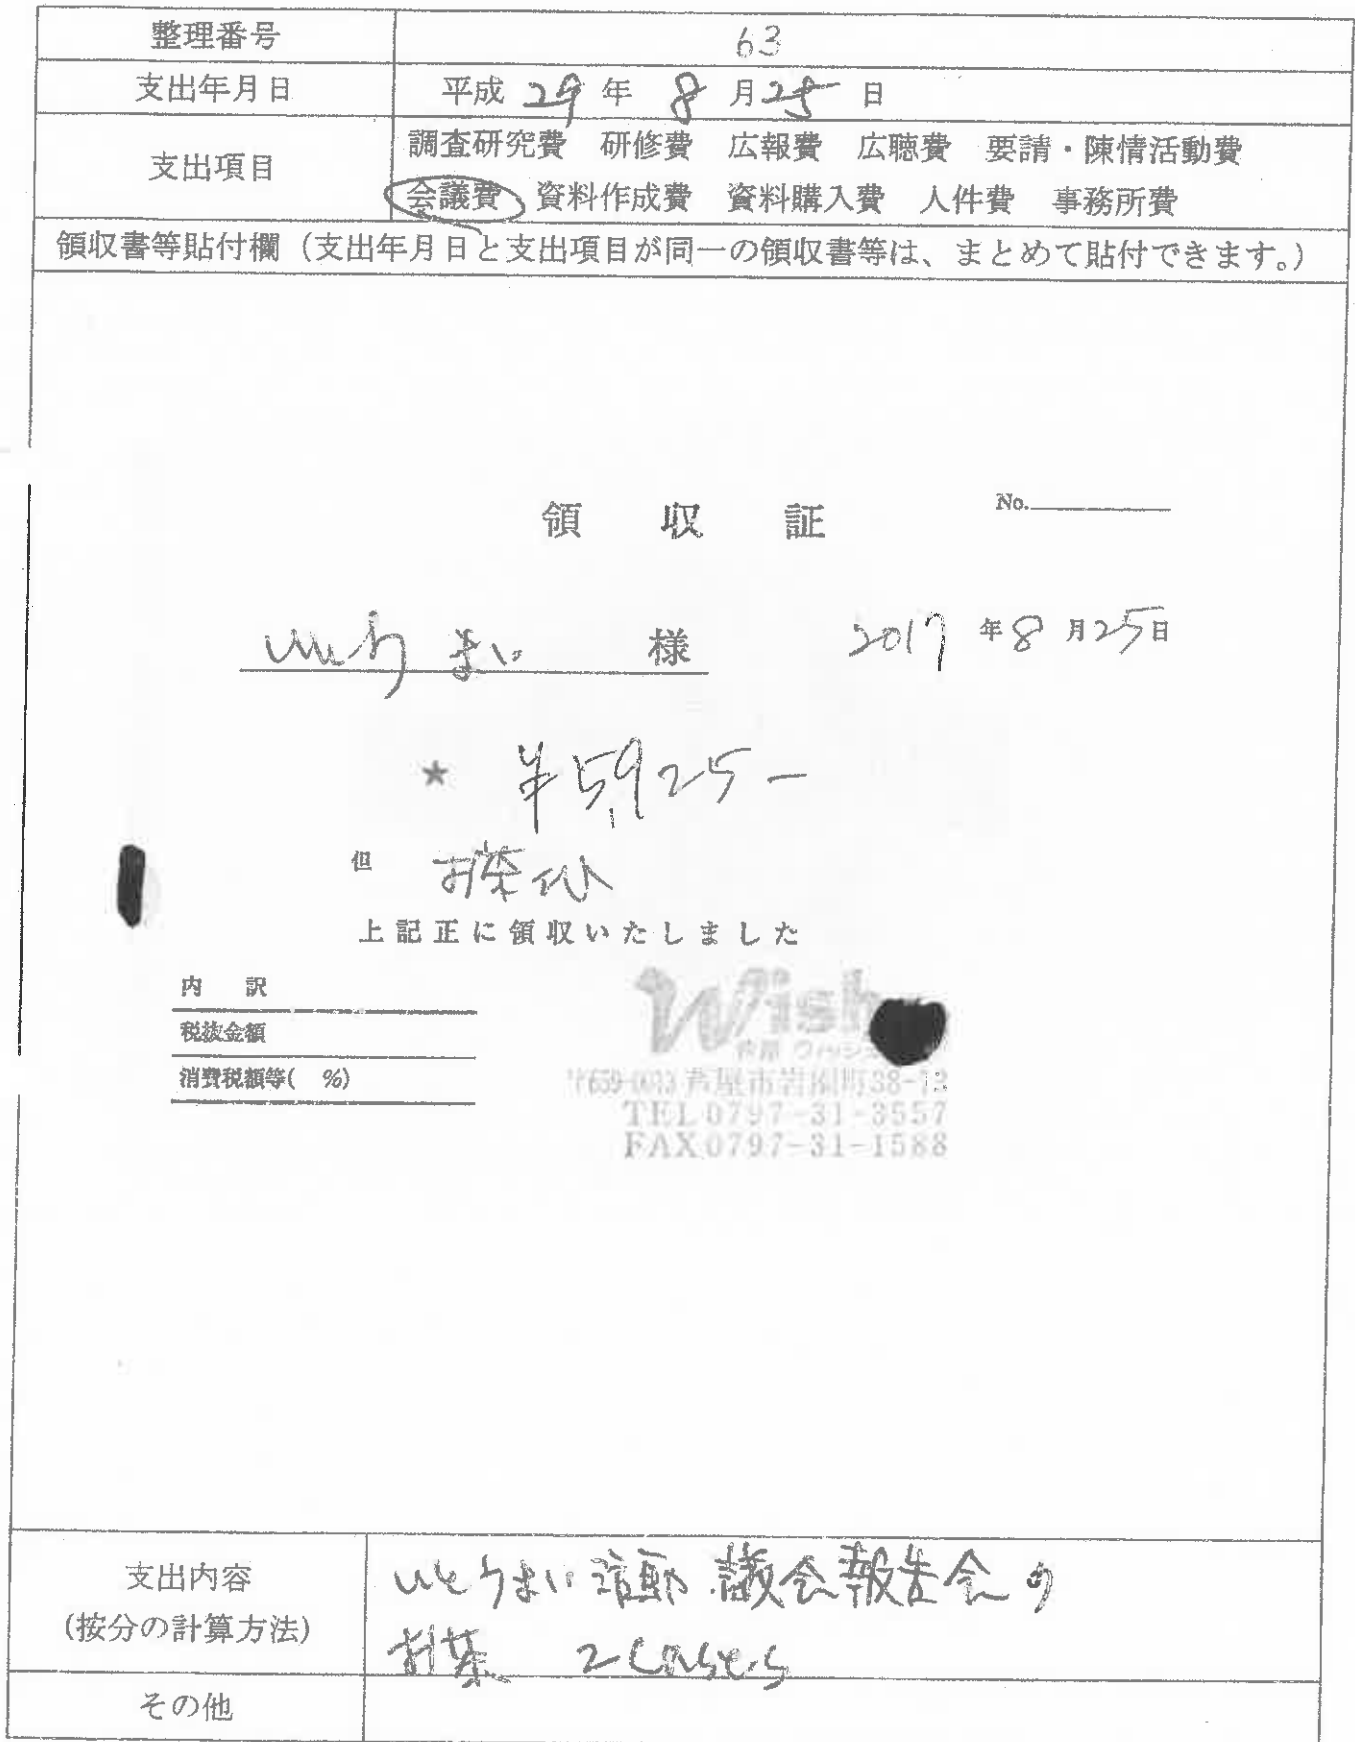 整理番号 63
支出年月日 平成 29 年 8 月 25 日
支出項目 調査研究費 研修費 広報費 広聴費 要請・陳情活動費
会議費 資料作成費 資料購入費 人件費 事務所費
領収書等貼付欄（支出年月日と支出項目が同一の領収書等は、まとめて貼付できます。）
領 収 証 No.
いとうまい 様 2017 年 8 月 25 日
★ ¥5,925-
但 お茶代
上記正に領収いたしました
内 訳
税抜金額
消費税額等( %)
Wish
芦屋市岩園町38-13
TEL 0797-31-3557
FAX 0797-31-1588
支出内容 いとうまい活動 議会報告会の
(按分の計算方法) お茶 2 cases
その他